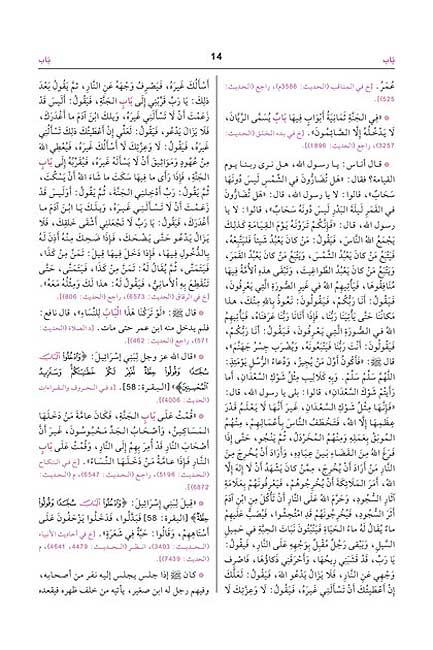 بَاب
14
بَاب
عُمَرُ. [خ في المناقب (الحديث: 3586م)، راجع (الحديث:
525)].
* «فِي الجَنَّةِ ثَمَانِيَةُ أَبْوَابٍ فِيهَا بَابٌ يُسَمَّى الرَّيَّانَ،
لَا يَدْخُلُهُ إِلَّا الصَّائِمُونَ». [خ في بدء الخلق (الحديث:
3257)، راجع (الحديث: 1896)].
* قال أناس: يا رسول الله، هل نرى ربنا يوم
القيامة؟ فقال: «هَل تُضَارُّونَ فِي الشَّمْسِ لَيسَ دُونَهَا
سَحَابٌ»، قالوا: لا يا رسول الله، قال: «هَل تُضَارُّونَ
فِي القَمَرِ لَيلَةَ البَدْرِ لَيسَ دُونَهُ سَحَابٌ»، قالوا: لا يا
رسول الله، قال: «فَإِنَّكُمْ تَرَوْنَهُ يَوْمَ القِيَامَةِ كَذلِكَ،
يَجْمَعُ اللهُ النَّاسَ، فَيَقُولُ: مَنْ كانَ يَعْبُدُ شَيئاً فَليَتَّبِعْهُ،
فَيَتْبَعُ مَنْ كانَ يَعْبُدُ الشَّمْسَ، وَيَتْبَعُ مَنْ كانَ يَعْبُدُ القَمَرَ،
وَيَتْبَعُ مَنْ كانَ يَعْبُدُ الطَّوَاغِيتَ، وَتَبْقَى هذِهِ الأُمَّةُ فِيهَا
مُنَافِقُوهَا، فَيَأْتِيهِمُ اللهُ فِي غَيرِ الصُّورَةِ الَّتِي يَعْرِفُونَ،
فَيَقُولُ: أَنَا رَبُّكُمْ، فَيَقُولُونَ: نَعُوذُ بِاللهِ مِنْكَ، هذا
مَكانُنَا حَتَّى يَأْتِيَنَا رَبُّنَا، فَإِذَا أَتَانَا رَبُّنَا عَرَفنَاهُ، فَيَأْتِيهِمُ
اللهُ فِي الصُّورَةِ الَّتِي يَعْرِفُونَ، فَيَقُولُ: أَنَا رَبُّكُمْ،
فَيَقُولُونَ: أَنْتَ رَبُّنَا فَيَتْبَعُونَهُ، وَيُضْرَبُ جِسْرُ جَهَنَّمَ»،
قال ﷺ: «فَأَكُونُ أَوَّلَ مَنْ يُجِيزُ، وَدُعَاءُ الرُّسُلِ يَوْمَئِذٍ:
اللَّهُمَّ سَلِّمْ سَلِّمْ. وَبِهِ كَلَالِيبُ مِثْلُ شَوْكِ السَّعْدَانِ، أَما
رَأَيتُمْ شَوْكَ السَّعْدَانِ؟» قالوا: بلى يا رسول الله، قال:
«فَإِنَّهَا مِثْلُ شَوْكِ السَّعْدَانِ، غَيرَ أَنَّهَا لَا يَعْلَمُ قَدْرَ
عِظَمِهَا إِلَّا اللهُ، فَتَخْطَفُ النَّاسَ بِأَعْمَالِهِمْ، مِنْهُمُ
المُوبَقُ بِعَمَلِهِ وَمِنْهُمُ المُخَرْدَلُ، ثُمَّ يَنْجُو، حَتَّى إِذَا
فَرَغَ اللهُ مِنَ القَضَاءِ بَينَ عِبَادِهِ، وَأَرَادَ أَنْ يُخْرِجَ مِنَ
النَّارِ مَنْ أَرَادَ أَنْ يُخْرِجَ، مِمَّنْ كانَ يَشْهَدُ أَنْ لَا إِلهَ إِلَّا
اللهُ، أَمَرَ المَلَائِكَةَ أَنْ يُخْرِجُوهُمْ، فَيَعْرِفُونَهُمْ بِعَلَامَةِ
آثَارِ السُّجُودِ، وَحَرَّمَ اللهُ عَلَى النَّارِ أَنْ تَأْكُلَ مِنِ ابْنِ آدَمَ
أَثَرَ السُّجُودِ، فَيُخْرِجُونَهُمْ قَدِ امْتُحِشُوا، فَيُصَبُّ عَلَيهِمْ
ماءٌ يُقَالُ لَهُ ماءُ الحَيَاةِ فَيَنْبُتُونَ نَبَاتَ الحِبَّةِ فِي حَمِيلِ
السَّيلِ، وَيَبْقَى رَجُلٌ مُقْبِلٌ بِوَجْهِهِ عَلَى النَّارِ، فَيَقُولُ:
يَا رَبِّ، قَدْ قَشَبَنِي رِيحُهَا، وَأَحْرَقَنِي ذَكاؤُهَا، فَاصْرِف
وَجْهِي عَنِ النَّارِ، فَلَا يَزَالُ يَدْعُو اللهَ، فَيَقُولُ: لَعَلَّكَ
إِنْ أَعْطَيتُكَ أَنْ تَسْأَلَنِي غَيرَهُ، فَيَقُولُ: لَا وَعِزَّتِكَ لَا
أَسْأَلُكَ غَيرَهُ، فَيَصْرِفُ وَجْهَهُ عَنِ النَّارِ، ثُمَّ يَقُولُ بَعْدَ
ذلِكَ: يَا رَبِّ قَرِّبْنِي إِلَى بَابِ الجَنَّةِ، فَيَقُولُ: أَلَيسَ قَدْ
زَعَمْتَ أَنْ لَا تَسْأَلَنِي غَيرَهُ، وَيلَكَ ابْنَ آدَمَ ما أَغْدَرَكَ،
فَلَا يَزَالُ يَدْعُو، فَيَقُولُ: لَعَلِّي إِنْ أَعْطَيتُكَ ذلِكَ تَسْأَلُنِي
غَيرَهُ، فَيَقُولُ: لَا وَعِزَّتِكَ لَا أَسْأَلُكَ غَيرَهُ، فَيُعْطِي اللهَ
مِنْ عُهُودٍ وَمَوَاثِيقَ أَنْ لَا يَسْأَلَهُ غَيرَهُ، فَيُقَرِّبُهُ إِلَى بَابِ
الجَنَّةِ، فَإِذَا رَأَى ما فِيهَا سَكَتَ ما شَاءَ اللهُ أَنْ يَسْكُتَ،
ثُمَّ يَقُولُ: رَبِّ أَدْخِلنِي الجَنَّةَ، ثُمَّ يَقُولُ: أَوَلَيسَ قَدْ
زَعَمْتَ أَنْ لَا تَسْأَلَنِي غَيرَهُ، وَيلَكَ يَا ابْنَ آدَمَ ما
أَغْدَرَكَ، فَيَقُولُ: يَا رَبِّ لَا تَجْعَلنِي أَشْقَى خَلقِكَ، فَلَا
يَزَالُ يَدْعُو حَتَّى يَضْحَكَ، فَإِذَا ضَحِكَ مِنْهُ أَذِنَ لَهُ
بِالدُّخُولِ فِيهَا، فَإِذَا دَخَلَ فِيهَا قِيلَ: تَمَنَّ مِنْ كَذَا،
فَيَتَمَنَّى، ثُمَّ يُقَالُ لَهُ: تَمَنَّ مِنْ كَذَا، فَيَتَمَنَّى، حَتَّى
تَنْقَطِعَ بِهِ الأَمانِيُّ، فَيَقُولُ لَهُ: هذا لَكَ وَمِثْلُهُ مَعَهُ».
[خ في الرقاق (الحديث: 6573)، راجع (الحديث: 806)].
* قال ﷺ: «لَوْ تَرَكْنَا هَذَا الْبَابَ لِلنِّسَاءِ»، قال نافع:
فلم يدخل منه ابن عمر حتى مات. [د الصلاة (الحديث:
571)، راجع (الحديث: 462)].
* «قال الله عز وجل لِبَنِي إِسْرَائِيلَ: ﴿وَادْخُلُوا الْبَابَ
سُجَّدًا وَقُولُوا حِطَّةٌ نَغْفِرْ لَكُمْ خَطَايَاكُمْ وَسَنَزِيدُ
الْمُحْسِنِينَ﴾ [البقرة: 58]. [د في الحروف والقراءات
(الحديث: 4006)].
* «قُمْتُ عَلَى بَابِ الجَنَّةِ، فَكانَ عامَّةُ مَنْ دَخَلَهَا
المَسَاكِينُ، وَأَصْحَابُ الجَدِّ مَحْبُوسُونَ، غَيرَ أَنَّ
أَصْحَابَ النَّارِ قَدْ أُمِرَ بِهِمْ إِلَى النَّارِ، وَقُمْتُ عَلَى بَابِ
النَّارِ فَإِذَا عامَّةُ مَنْ دَخَلَهَا النِّسَاءُ». [خ في النكاح
(الحديث: 5196)، راجع (الحديث: 6547)، م (الحديث:
6872)].
* «قِيلَ لِبَنِي إِسْرَائِيلَ: ﴿وَادْخُلُوا الْبَابَ سُجَّدًا وَقُولُوا
حِطَّةٌ﴾ [البقرة: 58] فَبَدَّلُوا، فَدَخَلُوا يَزْحَفُونَ عَلَى
أَسْتَاهِهِمْ، وَقَالُوا: حَبَّةٌ فِي شَعْرَةٍ». [خ في أحاديث الأنبياء
(الحديث: 3403)، انظر (الحديث: 4479، 4641)، م
(الحديث: 7439)].
* كان ﷺ إذا جلس يجلس إليه نفر من أصحابه،
وفيهم رجل له ابن صغير، يأتيه من خلف ظهره فيقعده